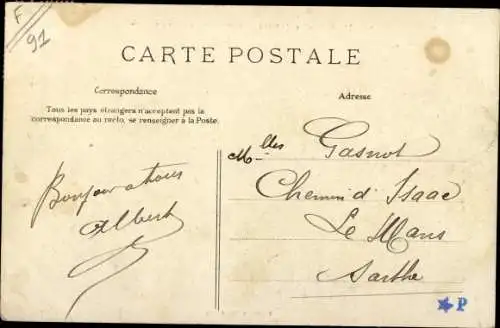 F
91
CARTE POSTALE
Correspondance
Tous les pays étrangers n'acceptent pas la
correspondance au recto, se renseigner à la Poste.
Adresse
Bonjour a tous
Albert
Melles Gasnot
Chemin d'Isaac
Le Mans
Sarthe
P